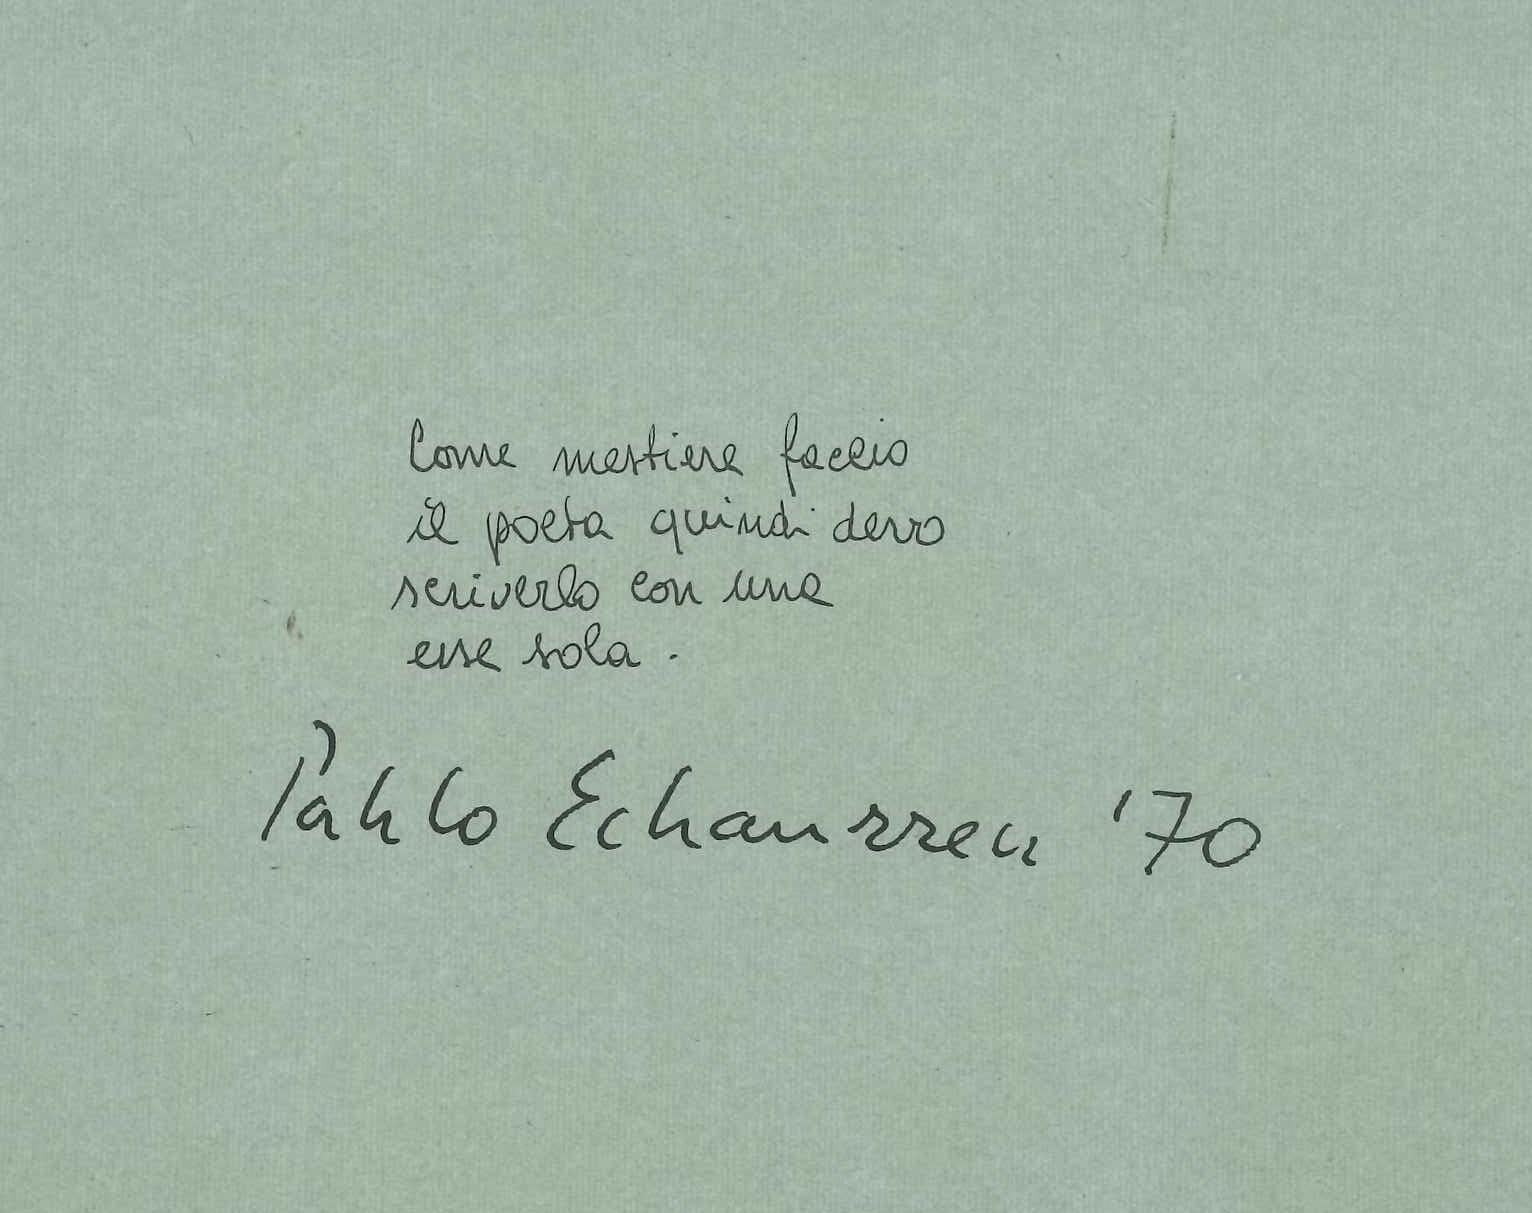 Come mestiere faccio
il poeta quindi devo
scriverlo con una
erre sola.
Pablo Echaurren '70